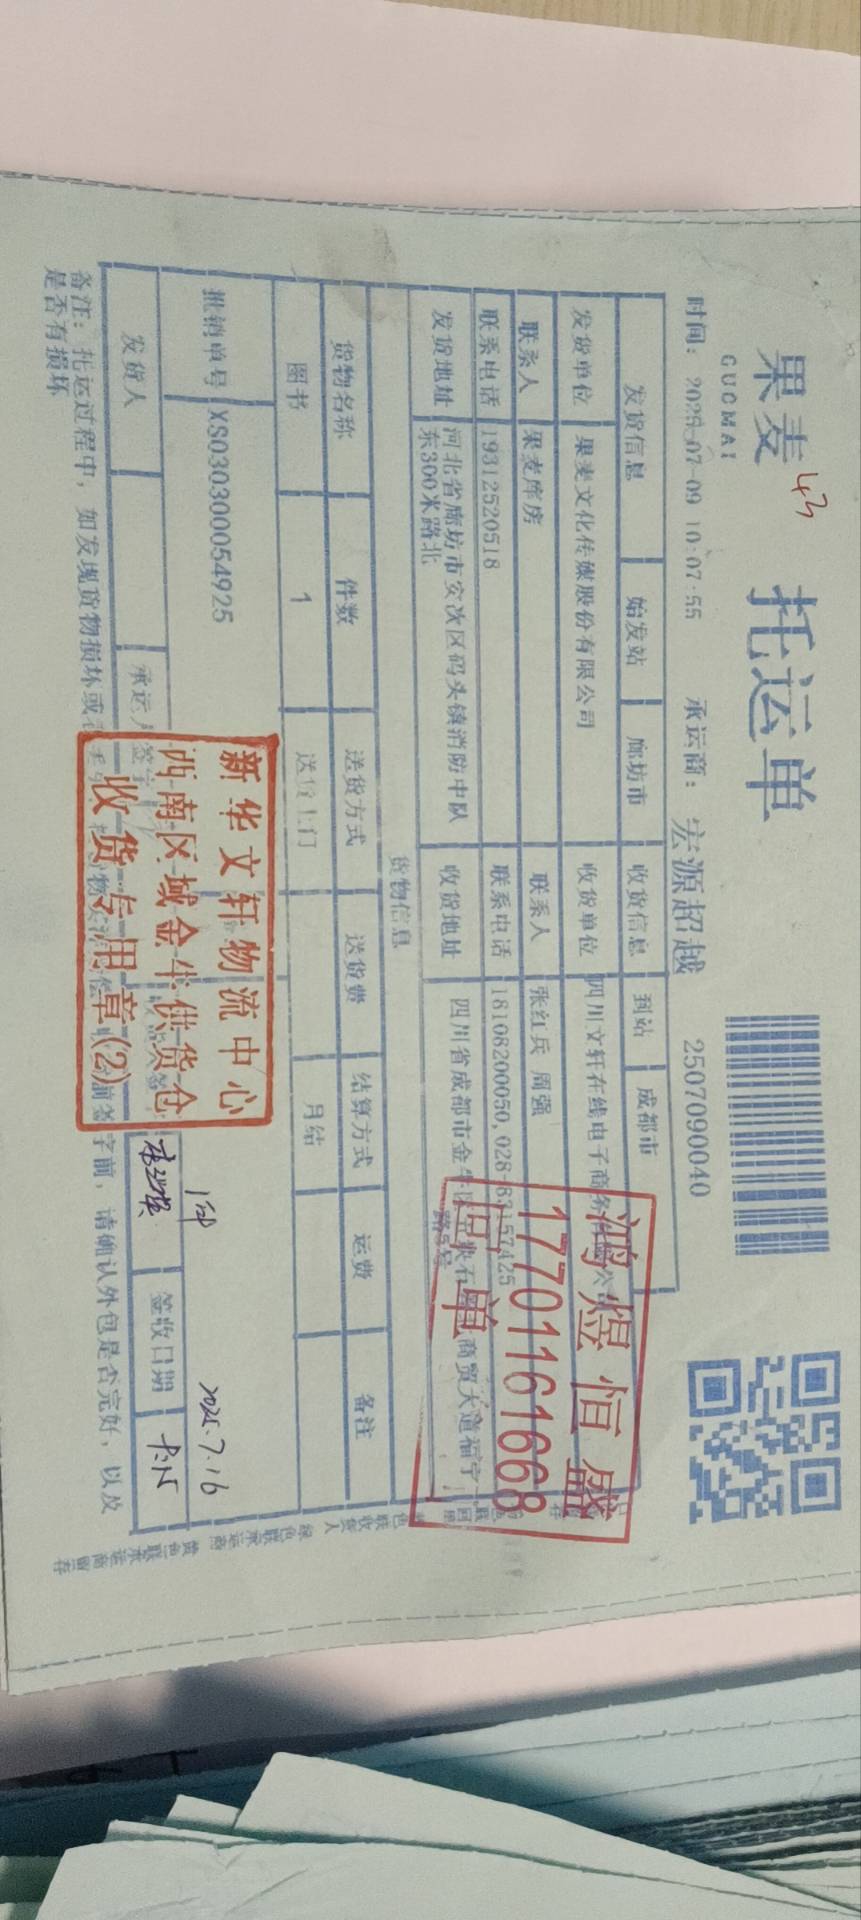 果麦
GUOMAI
43
托运单
2507090040
时间：2025-07-09 10:07:55 承运商：宏源超越
发货信息 始发站 廊坊市 收货信息 到站 成都市
发货单位 果麦文化传媒股份有限公司 收货单位 四川文轩在线电子商务有限公司
联系人 果麦库房 联系人 张红兵 周强
联系电话 19312520518 联系电话 18108200050,028-83157425
发货地址 河北省廊坊市安次区码头镇消防中队
东300米路北
收货地址 四川省成都市金牛区 商贸大道福宁
路5号
鸿煜恒盛
17701161668
单
货物信息
货物名称 件数 送货方式 送货费 结算方式 运费 备注
图书 1 送货上门 月结
批销单号 XS030300054925
1件
2025.7.16
发货人 承运人签字 签收日期
新华文轩物流中心
西南区域金牛供货仓
收货专用章(2)
备注：托运过程中，如发现货物损坏或 签字前，请确认外包是否完好，以及
是否有损坏